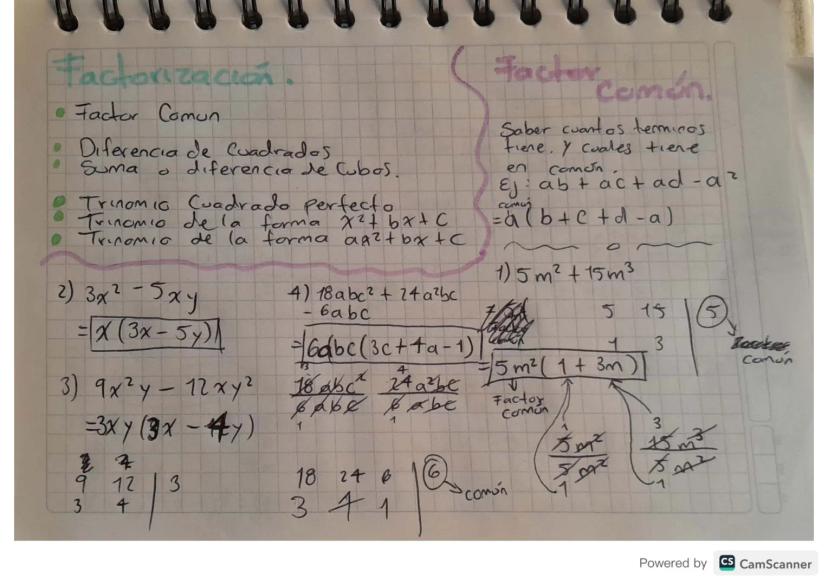 Factorización.
• Factor Comun
• Diferencia de Cuadrados
• Suma o diferencia de Cubos.
• Trinomio Cuadrado perfecto
• Trinomio de la forma x²+bx+c
• Trinomio de la forma ax²+bx+c
Factor
Común.
Saber cuantos terminos
tiene. Y cuales tiene
en común.
Ej: ab + ac + ad - a²
común
= a(b+c+d-a)
1) 5m² + 15m³
5 15 | 5
1 3
común
= 5m²(1 + 3m)
Factor
Común
1
5m²
5m²
1
3
15m³
5m²
1
2) 3x² - 5xy
= x(3x - 5y)
3) 9x²y - 12xy²
= 3xy(3x - 4y)
9 12 | 3
3 4
4) 18abc² + 24a²bc
- 6abc
= 6abc(3c+4a-1)
3
18abc²
6abc
1
4
24a²bc
6abc
1
18 24 6 | 6
3 4 1
común
Powered by CS CamScanner